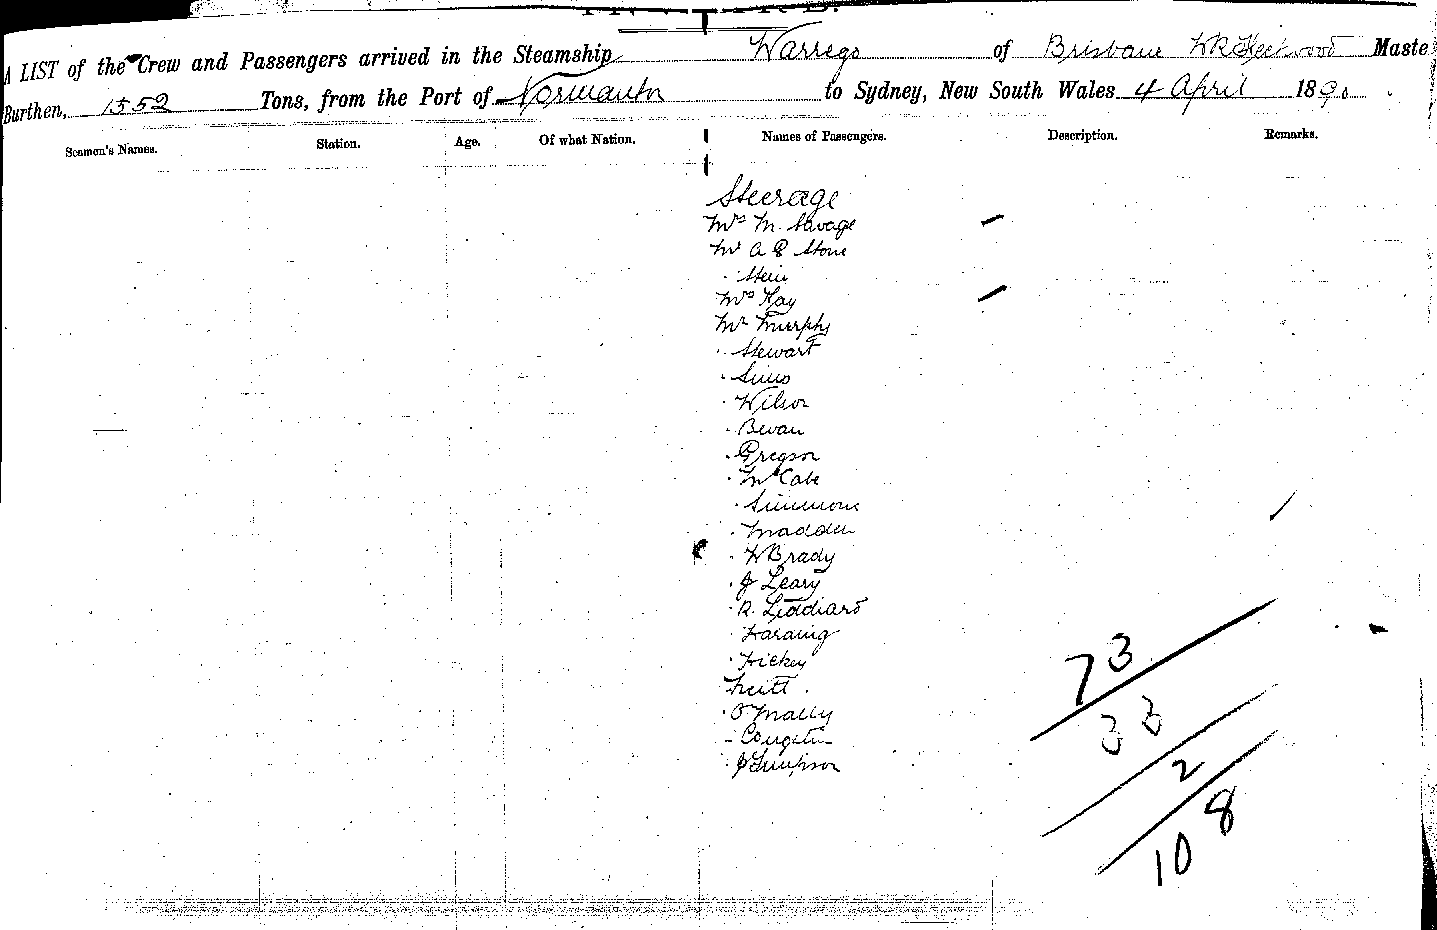 A LIST of the Crew and Passengers arrived in the Steamship Warrego of Brisbane W R Fleetwood Maste
Burthen, 1552 Tons, from the Port of Normanton to Sydney, New South Wales 4 April 1890
Seamen's Names. Station. Age. Of what Nation. Names of Passengers. Description. Remarks.
Steerage
Mrs M. Savage
Mr A E Stone
. Stein
Mrs Kay
Mr Murphy
. Stewart
. Sims
. Wilson
. Bevan
. Gregson
. McCabe
. Simmons
. Madden
. W Brady
. J Leary
. R. Liddiard
. Hickey
. O'Mally
. J Simpson
73
33
2
108